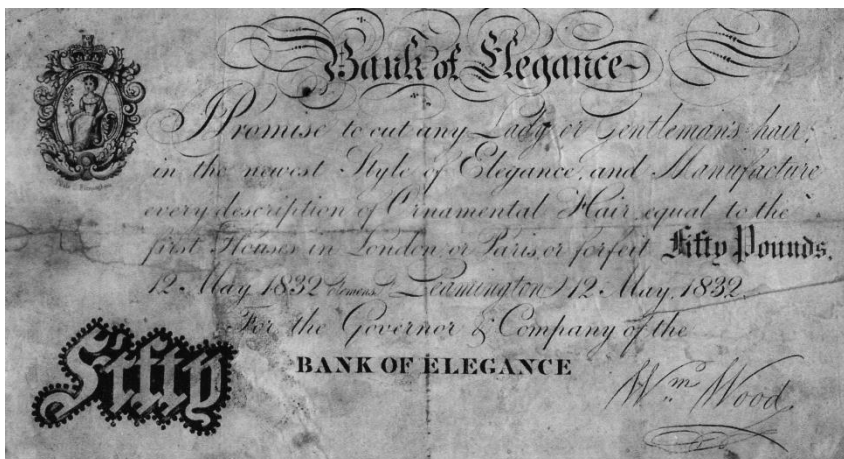 Bank of Elegance
I Promise to cut any Lady or Gentleman's hair,
in the newest Style of Elegance, and Manufacture
every description of Ornamental Hair, equal to the
first Houses in London, or Paris, or forfeit Fifty Pounds.
12 May 1832 Leamington 12 May 1832.
For the Governor & Company of the
BANK OF ELEGANCE
Fifty
Wm Wood